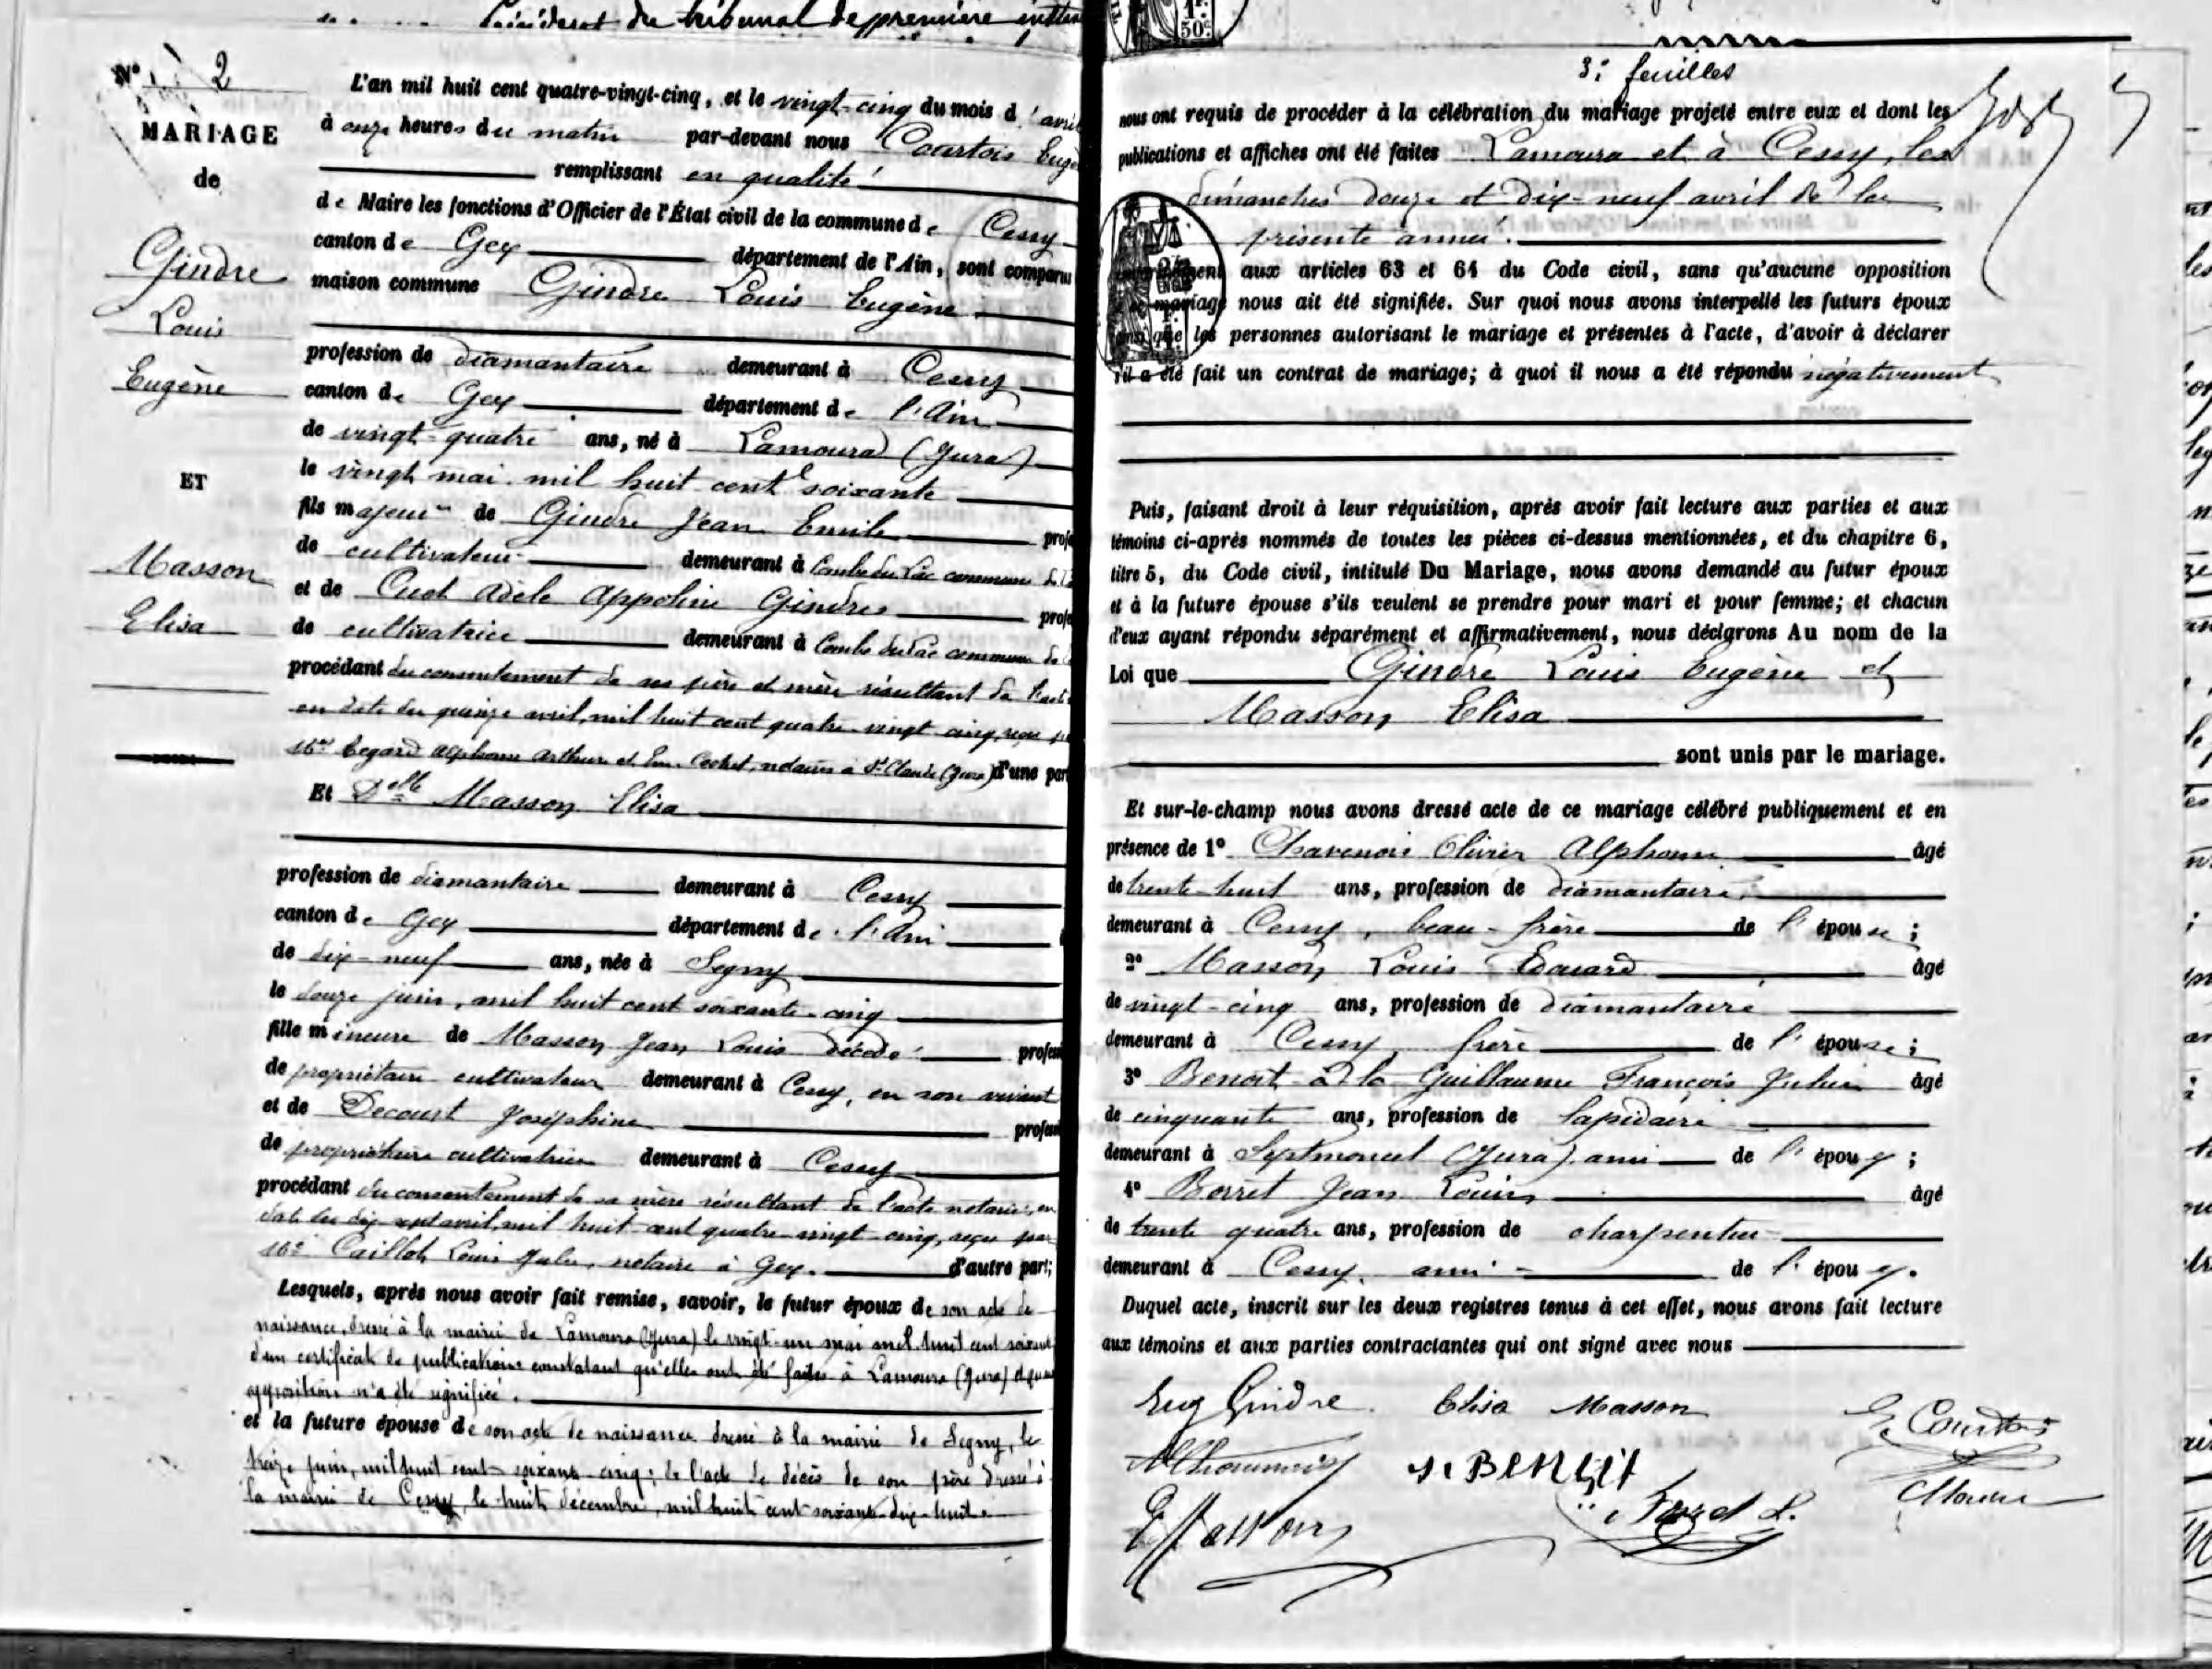 Président du tribunal de première
N° 2
MARIAGE
de
Gindre
Louis
Eugène
ET
Masson
Elisa
L'an mil huit cent quatre-vingt-cinq, et le vingt-cinq du mois d'avril
à onze heures du matin par-devant nous Courtois Eugè
remplissant en qualité
de Maire les fonctions d'Officier de l'État civil de la commune de Cessy
canton de Gex département de l'Ain, sont comparus
maison commune Gindre Louis Eugène
profession de diamantaire demeurant à Cessy
canton de Gex département de l'Ain
de vingt-quatre ans, né à Lamoura (Jura)
le vingt mai mil huit cent soixante
fils majeur de Gindre Jean Emile profe
de cultivateur demeurant à Combe du Lac commune de La
et de Adèle Appoline Gindre profe
de cultivatrice demeurant à Combe du Lac commune de
procédant du consentement de ses père et mère résultant de l'acte
en date du quinze avril, mil huit cent quatre-vingt-cinq, reçu
Alphonse Arthur et notaires à St Claude (Jura) d'une part
Et Delle Masson Elisa
profession de diamantaire demeurant à Cessy
canton de Gex département de l'Ain
de dix-neuf ans, née à Segny
le douze juin, mil huit cent soixante-cinq
fille mineure de Masson Jean Louis décédé profess
de propriétaire cultivateur demeurant à Cessy, en son vivant
et de Decourt Joséphine profess
de propriétaire cultivatrice demeurant à Cessy
procédant du consentement de sa mère résultant de l'acte notarié, en
date du dix sept avril, mil huit cent quatre vingt-cinq, reçu par
Me Caillot, Louis Jules, notaire à Gex. d'autre part;
Lesquels, après nous avoir fait remise, savoir, le futur époux de son acte de
naissance, dressé à la mairie de Lamoura (Jura) le vingt-un mai mil huit cent soixante
d'un certificat de publications constatant qu'elles ont été faites à Lamoura (Jura) et qu'au
opposition n'a été signifiée.
et la future épouse de son acte de naissance dressé à la mairie de Segny, le
treize juin, mil huit cent soixante cinq; de l'acte de décès de son père dressé à
la mairie de Cessy, le huit décembre, mil huit cent soixante-dix-huit.
50c
3e feuilles
nous ont requis de procéder à la célébration du mariage projeté entre eux et dont les
publications et affiches ont été faites Lamoura et à Cessy, les
dimanches douze et dix-neuf avril de la
présente année.
aux articles 63 et 64 du Code civil, sans qu'aucune opposition
mariage nous ait été signifiée. Sur quoi nous avons interpellé les futurs époux
ainsi que les personnes autorisant le mariage et présentes à l'acte, d'avoir à déclarer
s'il a été fait un contrat de mariage; à quoi il nous a été répondu négativement
Puis, faisant droit à leur réquisition, après avoir fait lecture aux parties et aux
témoins ci-après nommés de toutes les pièces ci-dessus mentionnées, et du chapitre 6,
titre 5, du Code civil, intitulé Du Mariage, nous avons demandé au futur époux
et à la future épouse s'ils veulent se prendre pour mari et pour femme; et chacun
d'eux ayant répondu séparément et affirmativement, nous déclarons Au nom de la
Loi que Gindre Louis Eugène et
Masson Elisa
sont unis par le mariage.
Et sur-le-champ nous avons dressé acte de ce mariage célébré publiquement et en
présence de 1° Olivier Alphonse âgé
de trente-huit ans, profession de diamantaire,
demeurant à Cessy, beau-frère de l'épouse;
2° Masson Louis Edouard âgé
de vingt-cinq ans, profession de diamantaire
demeurant à Cessy, frère de l'épouse;
3° Benoit-à-la Guillaume François Julien âgé
de cinquante ans, profession de lapidaire
demeurant à Septmoncel (Jura) ami de l'époux;
4° Borret Jean Louis âgé
de trente quatre ans, profession de charpentier
demeurant à Cessy, ami de l'époux.
Duquel acte, inscrit sur les deux registres tenus à cet effet, nous avons fait lecture
aux témoins et aux parties contractantes qui ont signé avec nous
Eug Gindre Elisa Masson E. Courtois
J. BENOIT
E Masson